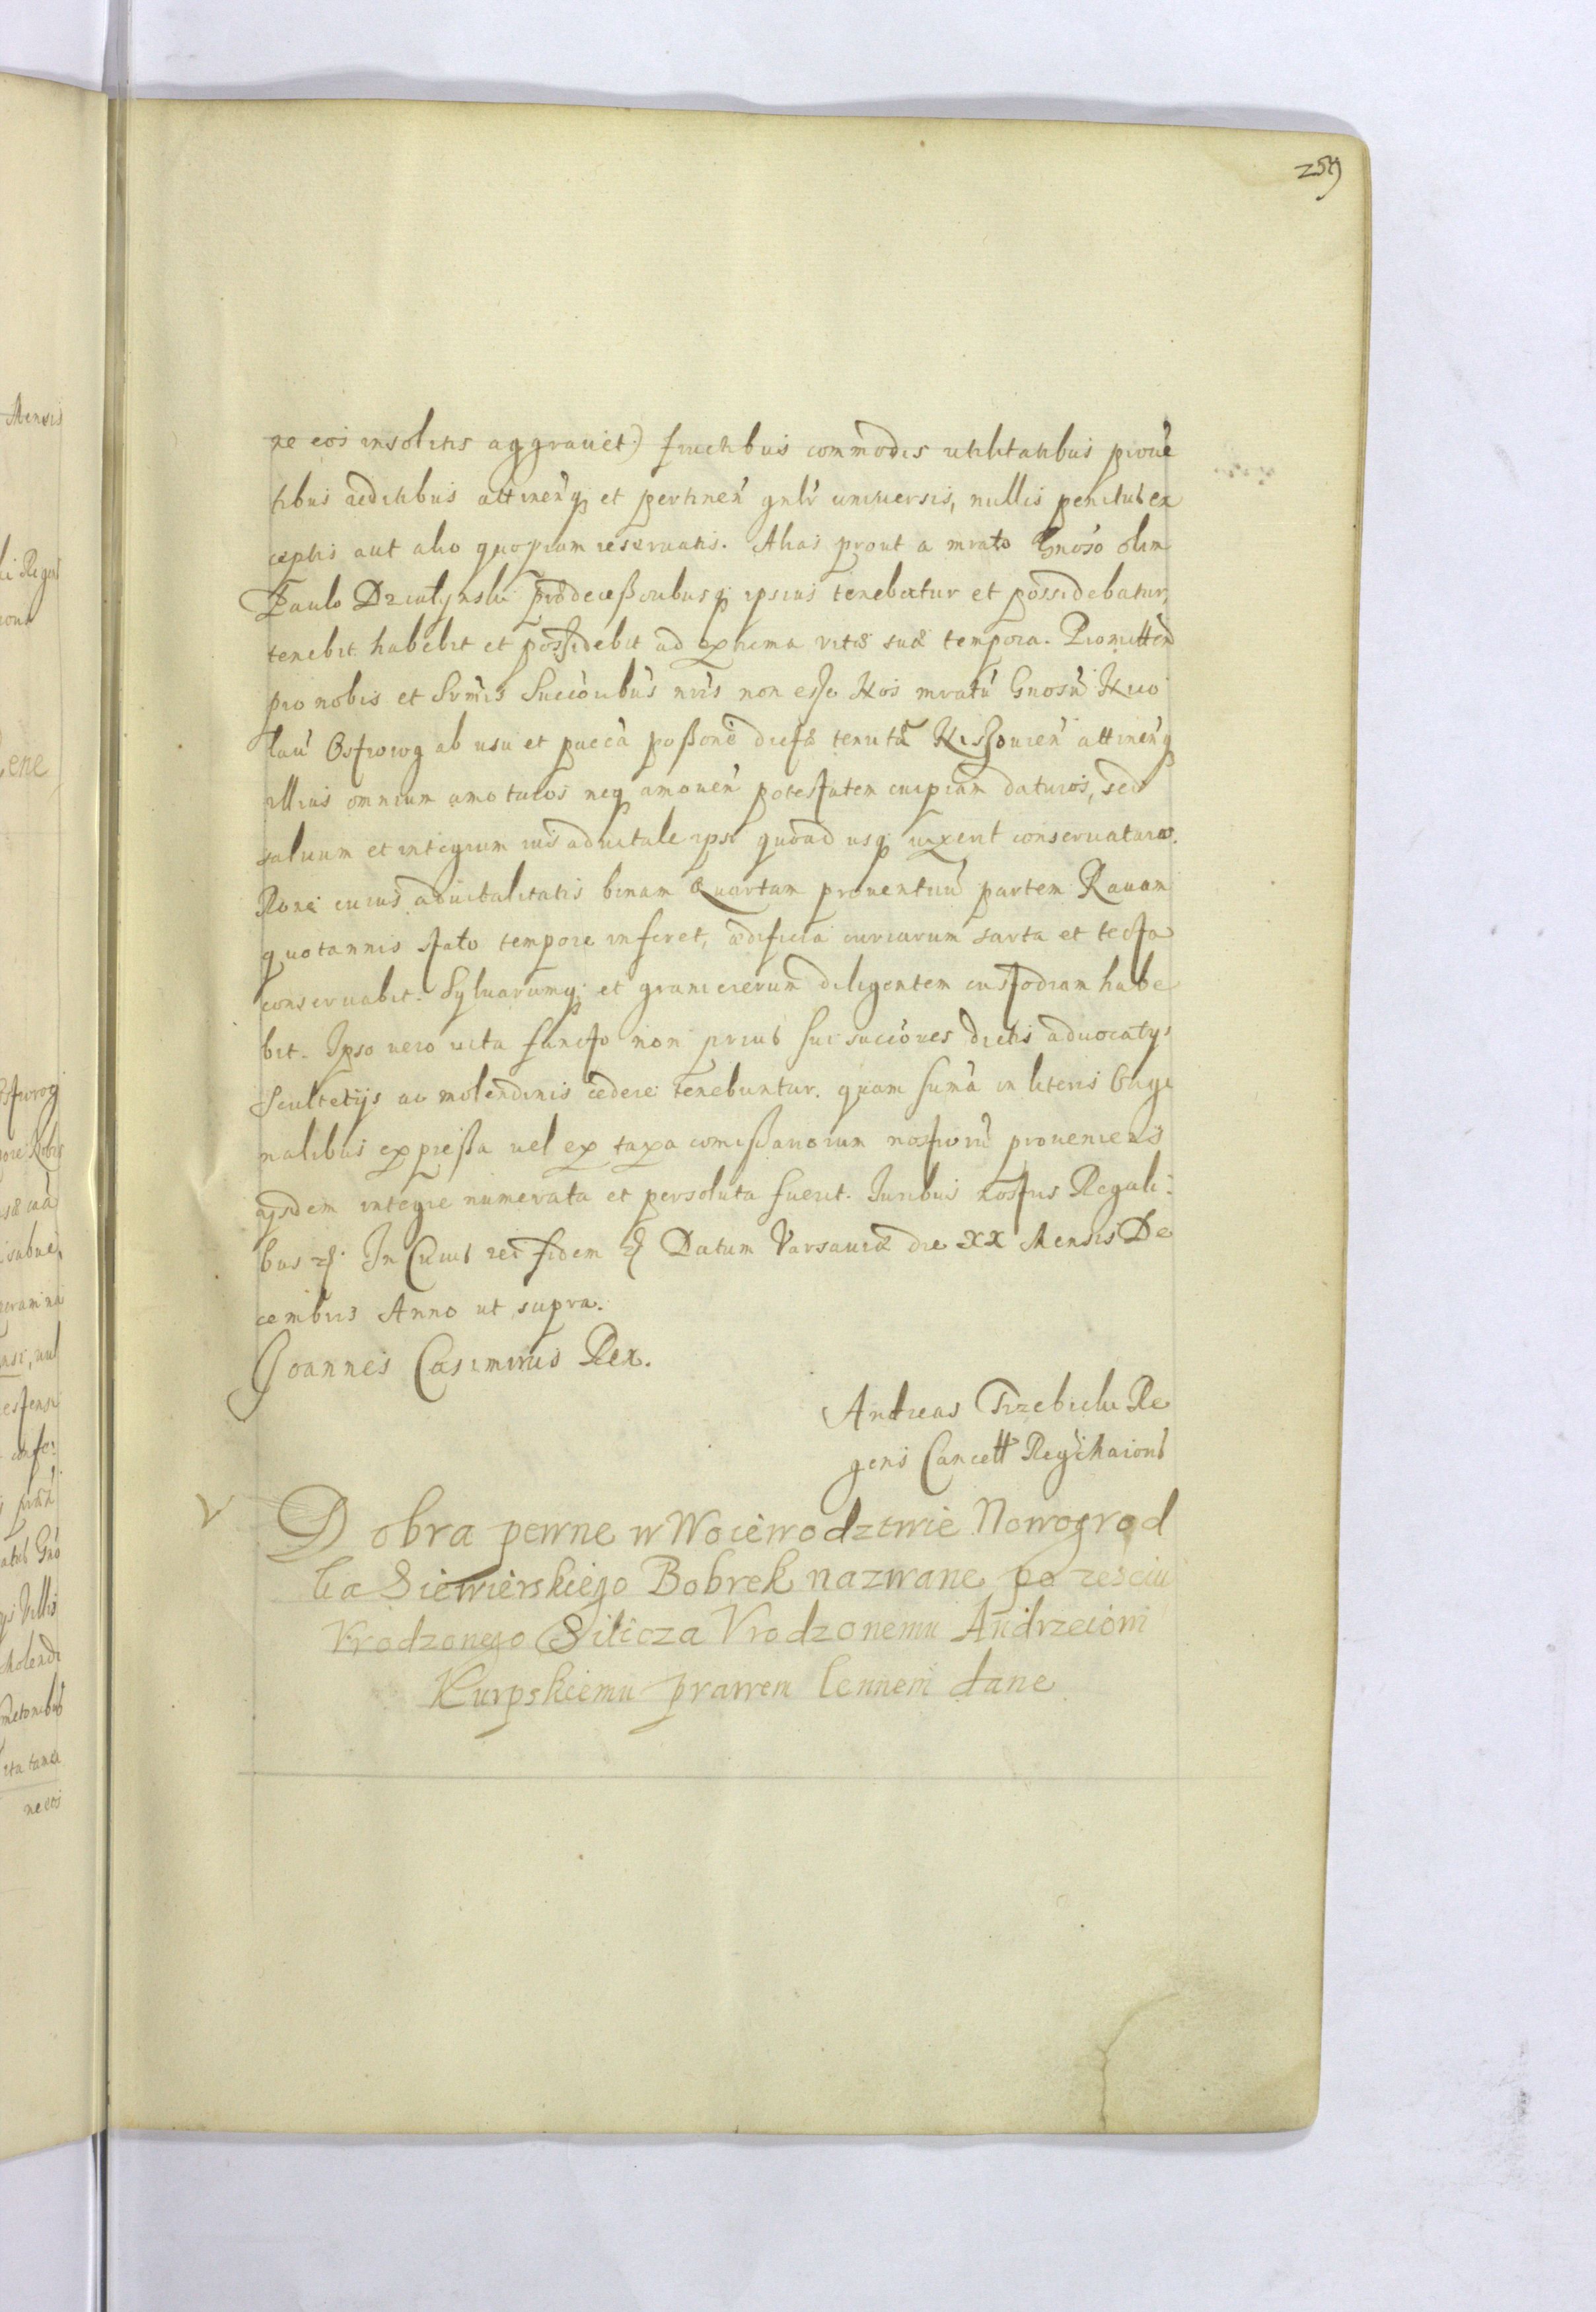 259
ne eos insolitis aggrauet) fructibus commodis utilitatibus prouē
tibus reditibus attineñ q; et pertineñ gnlr uniuersis, nullis penitus ex
ceptis aut alio quopiam reseruatis. Alias prout a mrato Gnoso olim
Paulo Dzialynski prædecessoribusq; ipsius tenebatur et possidebatur,
tenebit habebit et possidebit ad extrema vitæ suæ tempora. Promitteñ
pro nobis et Srmis Succoribus nris non esse Nos mratũ Gnosũ
Ostrorog ab usu et paccã possone dictæ tenutæ Kiszouień attineñ q
illius omnium amoturos neq amoueñ potestatem cuipiam daturos, sed
saluum et integrum ius aduitale ipsi quoad usq uixerit conseruaturos.
Rone cuius aduitalitatis binam Quartam prouentuũ partem Rauam
quotannis stato tempore inferet, ædificia curiarum sarta et tecta
conseruabit. Syluarumq; et granicierum diligentem custodiam habe
bit. Ipso uero uita functo non prius sui succōres dictis aduocatys
Scultetijs ac molendinis cedere tenebuntur. quam sumã in literis Origi
nalibus expressa uel ex taxa comissariorum nostrorũ proueniens
ijsdem integre numerata et persoluta fuerit. Iuribus nostris Regali:
bus etc. In Cuius rei fidem etc Datum Varsauiæ die XX Mensis De
cembris Anno ut supra.
Joannes Casimirus Rex.
Andreas Trzebicki Re
gens Cancell Regñ Maioris
Dobra pewne w Woiewodztwie Nowogrod
ka Siewierskiego Bobrek nazwane po zesciu
Vrodzonego Silicza Vrodzonemu Andrzeiowi
Kurpskiemu prawem lennem dane